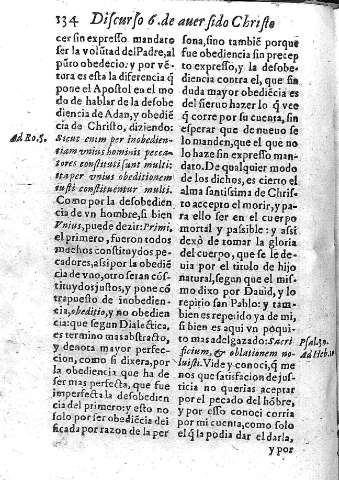 134 Discurso 6. de auer sido Christo
cer sin expresso mandato
ser la volūtad del Padre, al
pūro obedecio: y por vē-
tura es esta la diferencia q̄
pone el Apostol en el mo
do de hablar de la desobe
diencia de Adan, y obediē
cia de Christo, diziendo:
Ad Ro. 5.
Sicut enim per inobedien-
tiam vnius hominis pecca-
tores constituti sunt multi:
ita per vnius obeditionem
iusti constituentur multi.
Como por la desobedien
cia de vn hombre, si bien
Vnius, puede dezir: Primi,
el primero, fueron todos
mechos constituydos pe-
cadores, assi por la obediē
cia de vno, otros seran cōs-
tituydos justos, y pone cō
trapuesto de inobedien-
cia, obeditio, y no obedien
cia: que segun Dialectica,
es termino mas abstracto,
y denota mayor perfec-
cion, como si dixera, por
la obediencia que ha de
ser mas perfecta, que fue
imperfecta la desobedien
cia del primero: y esto no
solo por ser obediēcia dei
ficada por razon de la per
sona, sino tambiē porque
fue obediencia sin precep
to expresso, y la desobe-
diencia contra el, que sin
duda mayor obediēcia es
del sieruo hazer lo q̄ vee
q̄ corre por su cuenta, sin
esperar que de nueuo se
lo manden, que el que no
lo haze sin expresso man-
dato. De qualquier modo
de los dichos, es cierto el
alma santissima de Chris-
to accepto el morir, y pa-
ra ello ser en el cuerpo
mortal y passible: y assi
dexò de tomar la gloria
del cuerpo, que se le de-
uia por el titulo de hijo
natural, segun que el mis-
mo dixo por Dauid, y lo
repitio san Pablo: y tam-
bien es repetido ya de mi,
si bien es aqui vn poqui-
to mas adelgazado: Sacri
Psal. 39.
ficium, & oblationem no-
Ad Heb. 10
luisti. Vide y conoci, q̄ me
nos que satisfacion de jus-
ticia no querias aceptar
por el pecado del hōbre,
y por esso conoci corria
por mi cuenta, como solo
el q̄ la podia dar el darla,
y por